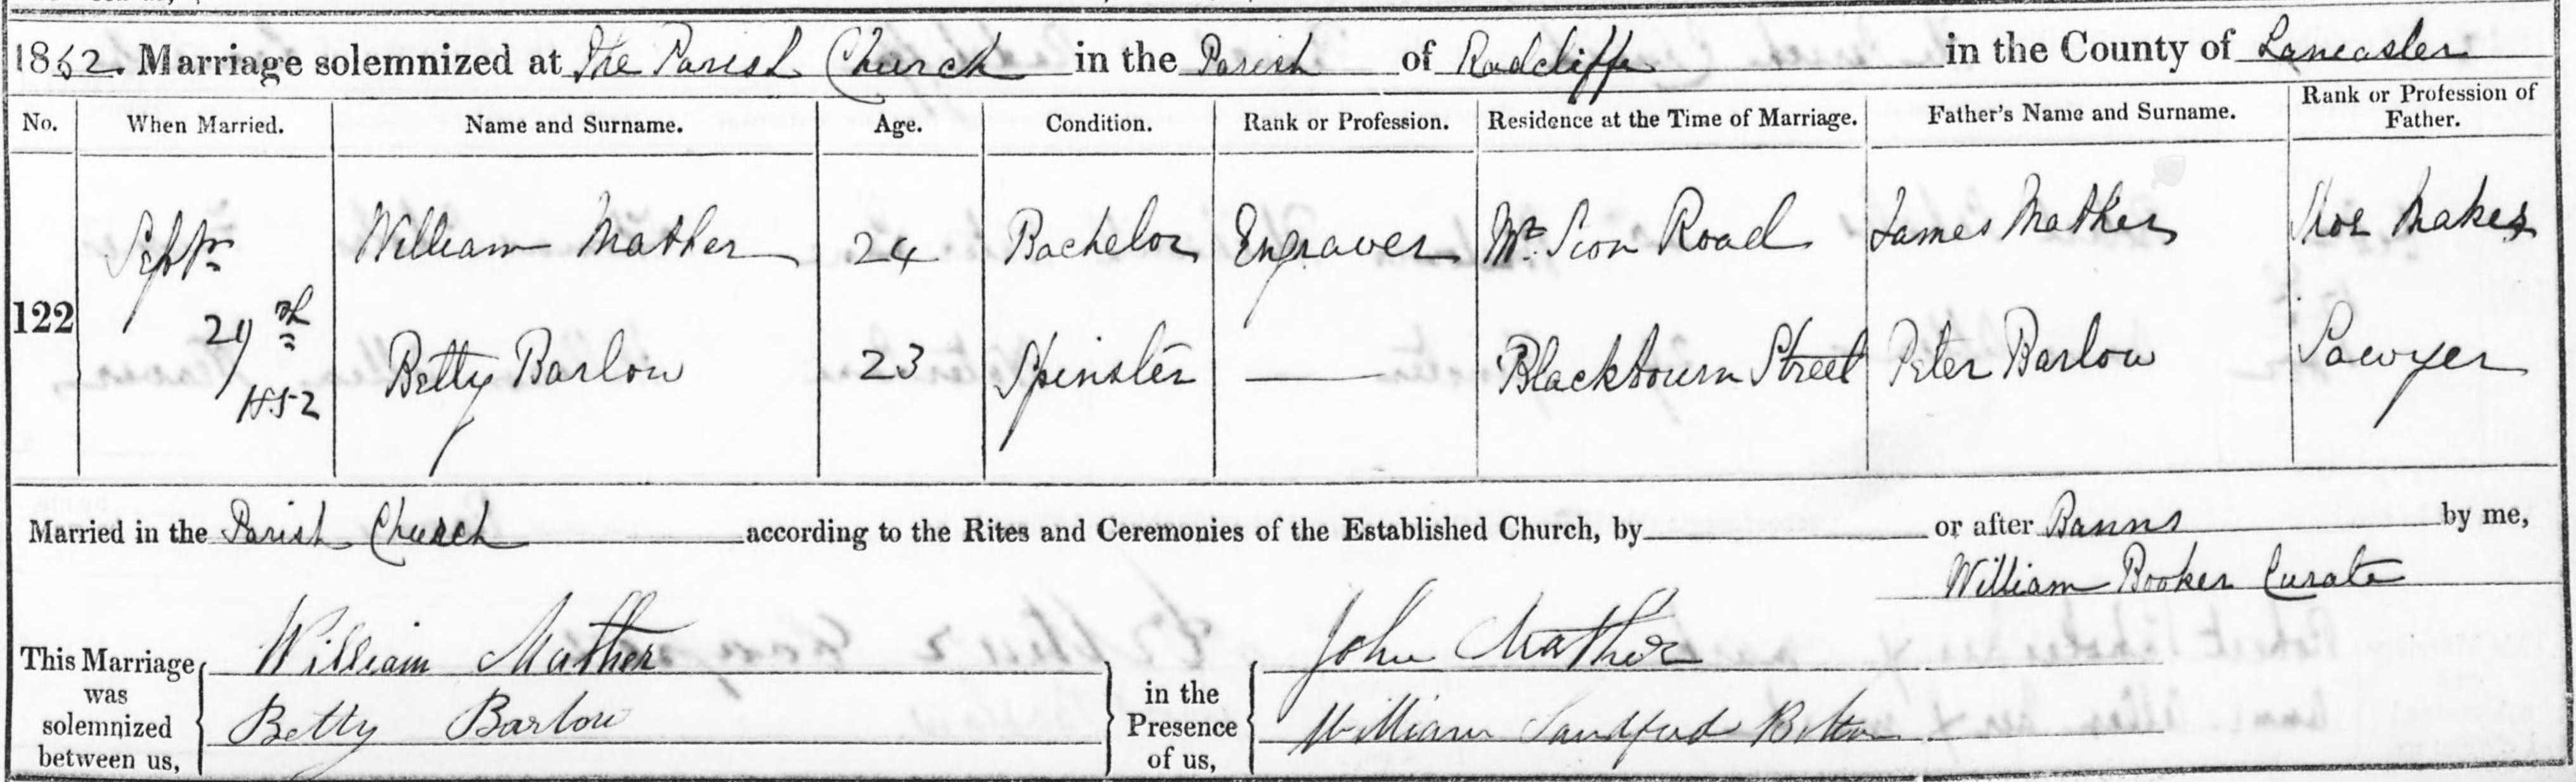 1852. Marriage solemnized at The Parish Church in the Parish of Radcliffe in the County of Lancaster
No. When Married. Name and Surname. Age. Condition. Rank or Profession. Residence at the Time of Marriage. Father's Name and Surname. Rank or Profession of Father.
122
Septr William Mather 24 Bachelor Engraver Mt. Sion Road James Mather Shoe Maker
29th 1852 Betty Barlow 23 Spinster — Blackbourn Street Peter Barlow Sawyer
Married in the Parish Church according to the Rites and Ceremonies of the Established Church, by or after Banns by me,
William Booker Curate
This Marriage was solemnized between us,
William Mather
Betty Barlow
in the Presence of us,
John Mather
William Sandford Bolton